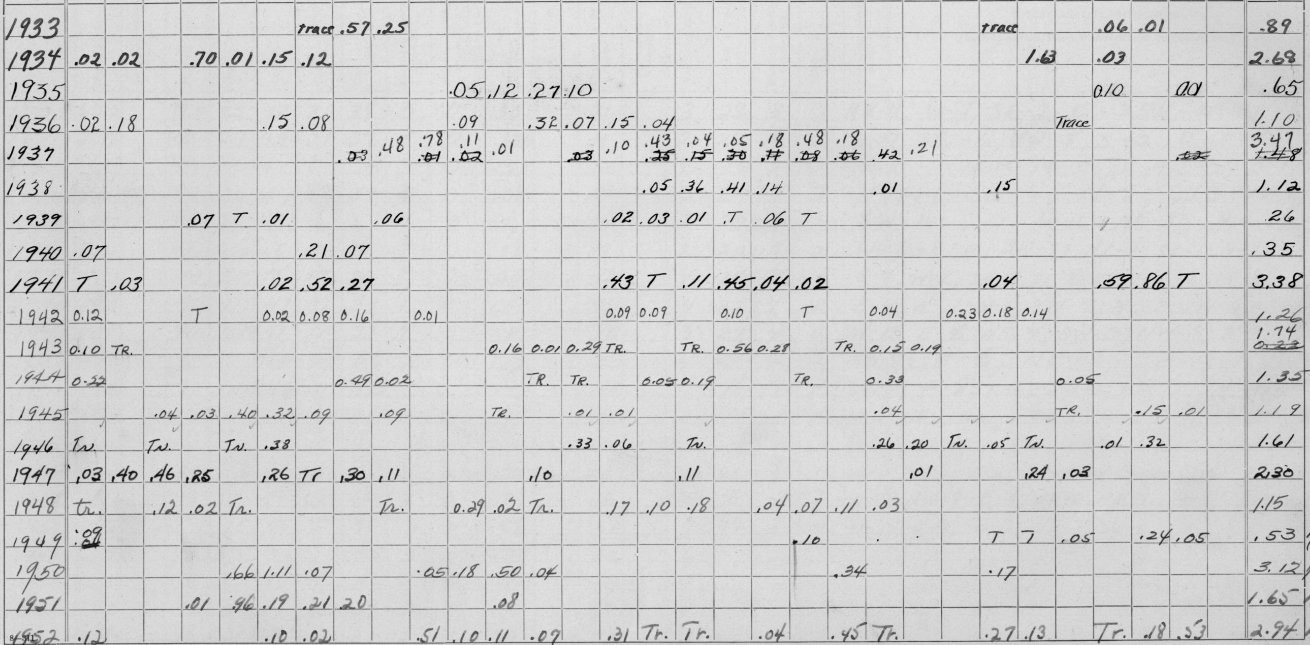 1933 trace .57 .25 trace .06 .01 .89
1934 .02 .02 .70 .01 .15 .12 1.63 .03 2.68
1935 .05 .12 .27 .10 0.10 0.01 .65
1936 .02 .18 .15 .08 .09 .32 .07 .15 .04 Trace 1.10
.48 .78 .11 .01 .10 .43 .04 .05 .18 .48 .18 3.47
1937 .03 .01 .02 .03 .25 .15 .30 .11 .08 .06 .42 .21 .02 1.48
1938 .05 .36 .41 .14 .01 .15 1.12
1939 .07 T .01 .06 .02 .03 .01 .T .06 T .26
1940 .07 .21 .07 .35
1941 T .03 .02 .52 .27 .43 T .11 .45 .04 .02 .04 .59 .86 T 3.38
1942 0.12 T 0.02 0.08 0.16 0.01 0.09 0.09 0.10 T 0.04 0.23 0.18 0.14 1.26
1.74
1943 0.10 TR. 0.16 0.01 0.29 TR. TR. 0.56 0.28 TR. 0.15 0.19
1944 0.22 0.49 0.02 TR. TR. 0.05 0.19 TR. 0.33 0.05 1.35
1945 .04 .03 .40 .32 .09 .09 TR. .01 .01 .04 TR. .15 .01 1.19
1946 Tr. Tr. Tr. .38 .33 .06 Tr. .26 .20 Tr. .05 Tr. .01 .32 1.61
1947 .03 .40 .46 .25 .26 Tr .30 .11 .10 .11 .01 .24 .03 2.30
1948 tr. .12 .02 Tr. Tr. 0.29 .02 Tr. .17 .10 .18 .04 .07 .11 .03 1.15
1949 .09 .10 T T .05 .24 .05 .53
1950 .66 1.11 .07 .05 .18 .50 .04 .34 .17 3.12
1951 .01 .96 .19 .21 .20 .08 1.65
1952 .12 .10 .02 .51 .10 .11 .07 .31 Tr. Tr. .04 .45 Tr. .27 .13 Tr. .18 .53 2.94